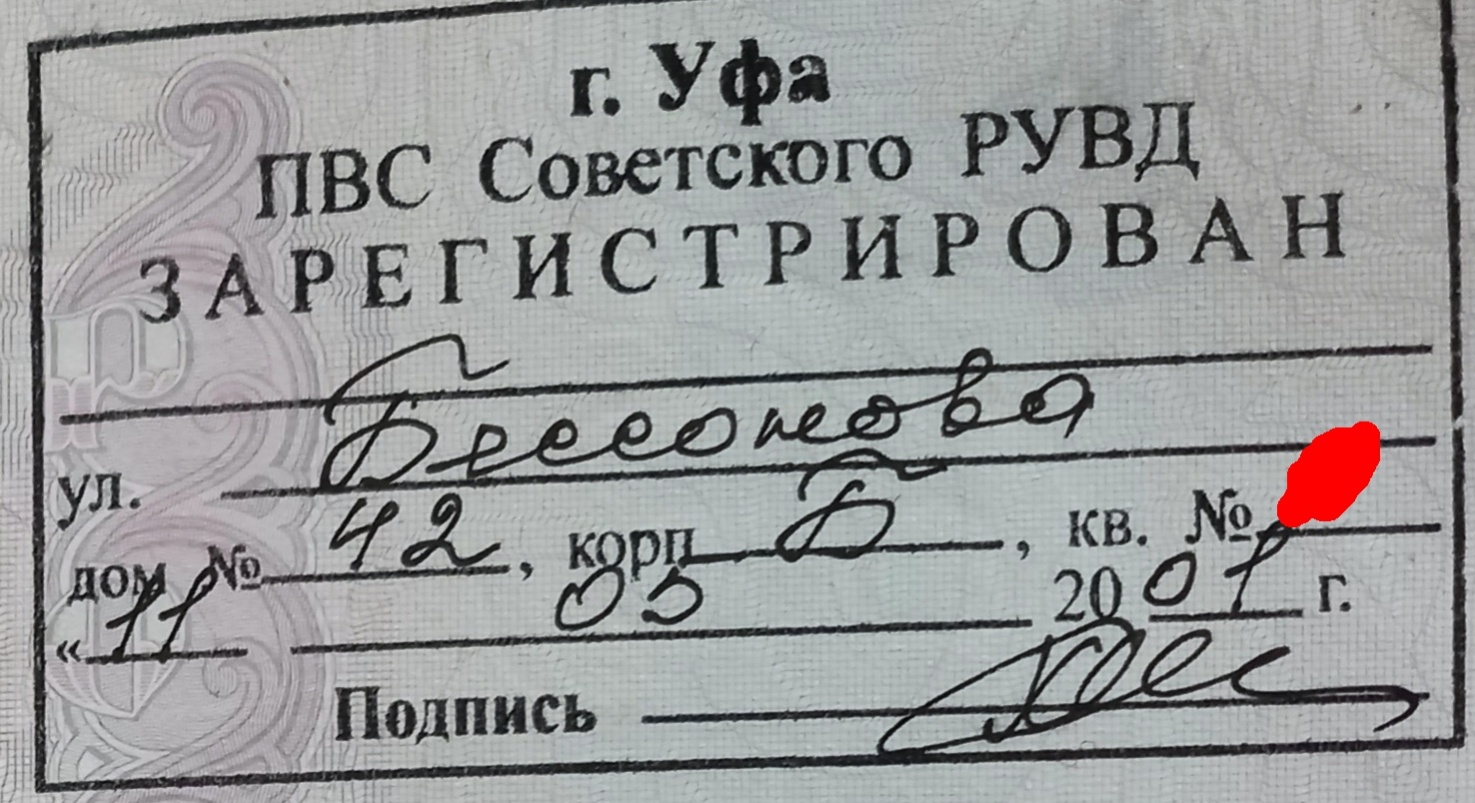 г. Уфа
ПВС Советского РУВД
ЗАРЕГИСТРИРОВАН
ул. Бессонова
дом № 42, корп Б, кв. №
«11 05 2001 г.
Подпись